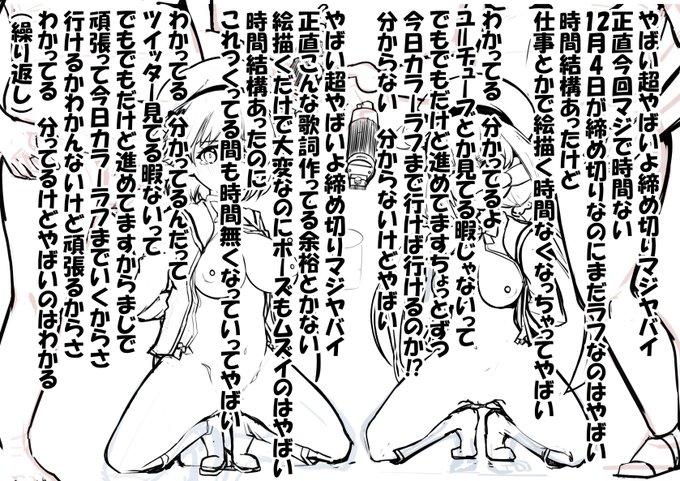 やばい超やばいよ締め切りマジヤバイ
正直今回マジで時間ない
12月4日が締め切りなのにまだラフなのはやばい
時間結構あったけど
仕事とかで絵描く時間なくなっちゃってヤバい
わかってる 分かってるよ
ユーチューブとか見てる暇じゃないって
でもでもだけど進めてますちょっとずつ
今日カラーラフまで行けば行けるのか!?
分からない 分からないけどやばい
やばい超やばいよ締め切りマジヤバイ
正直こんな歌詞作ってる余裕とかない
絵描くだけで大変なのにポーズもムズイのはやばい
時間結構あったのに
これつくってる間も時間無くなっていってやばい
わかってる 分かってるんだって
ツイッター見てる暇ないって
でもでもだけど進めてますからまじで
頑張って今日カラーラフまでいくからさ
行けるかわかんないけど頑張るからさ
わかってる 分ってるけどやばいのはわかる
(繰り返し)